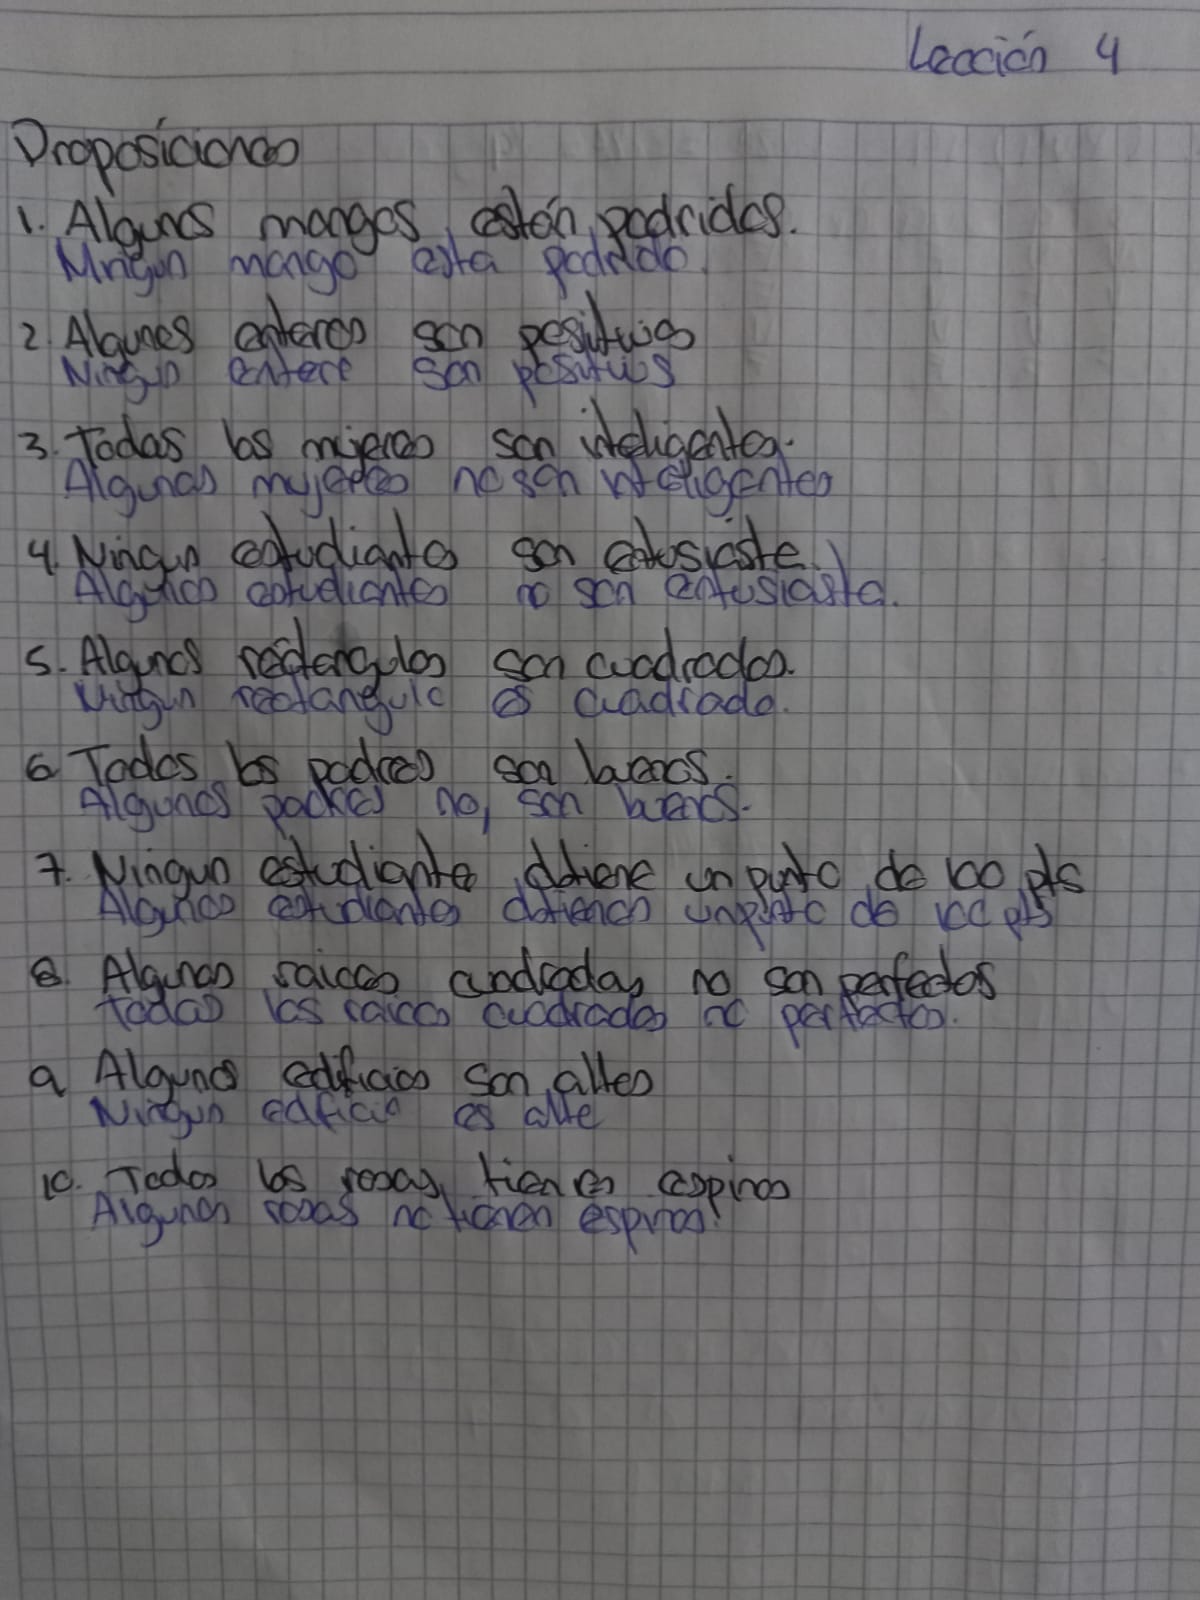 Lección 4
Proposiciones
1. Algunos mangos están podridos.
Ningun mango esta podrido.
2. Algunos enteros son positivos
Ningun entero son positivos
3. Todas las mujeres son inteligentes.
Algunas mujeres no son inteligentes
4. Ningun estudiante son entusiasta.
Algunos estudiantes no son entusiasta.
5. Algunos rectangulos son cuadrados.
Ningun rectangulo es cuadrado.
6 Todos los padres son buenos.
Algunos padres no, son buenos.
7. Ningun estudiante obtiene un punto de 100 pts
Algunos estudiantes obtienen un punto de 100 pts
8. Algunas raices cuadradas no son perfectas
Todas las raices cuadradas no perfectas.
9 Algunos edificios son altos
Ningun edificio es alto
10. Todas las rosas tienen espinas
Algunas rosas no tienen espinas.